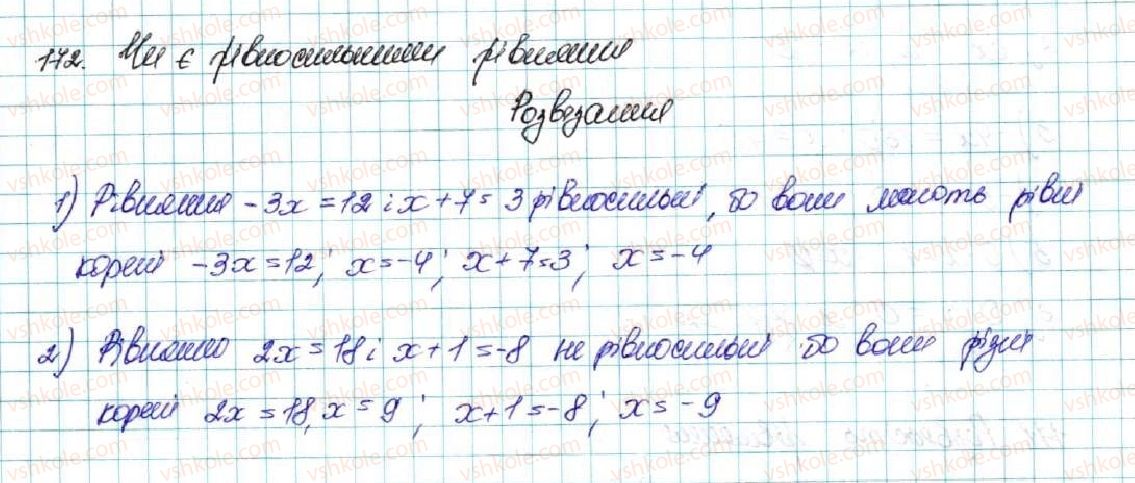 172. Чи є рівносильними рівняння
Розвезання
1) Рівняння -3x = 12 і x + 7 = 3 рівносильні, бо вони мають рівні
корені -3x = 12; x = -4; x + 7 = 3; x = -4
2) Рівняння 2x = 18 і x + 1 = -8 не рівносильні бо вони різні
корені 2x = 18, x = 9; x + 1 = -8; x = -9